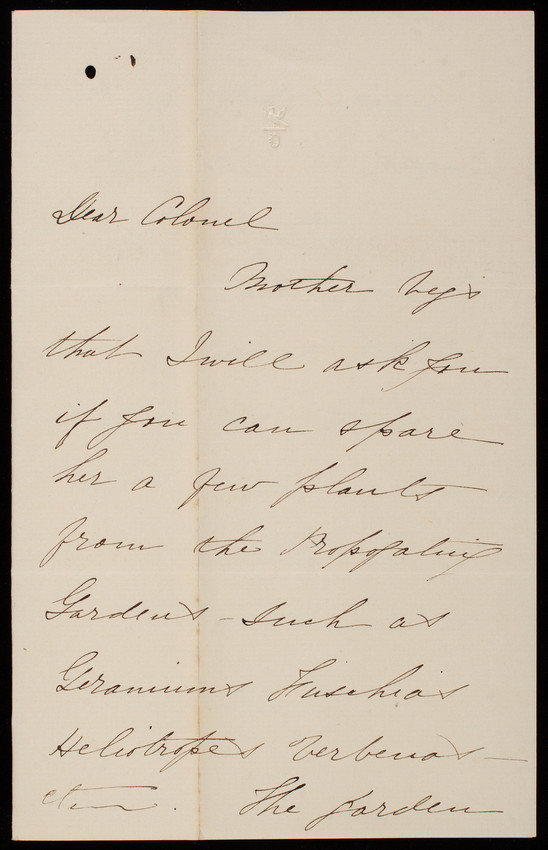 Dear Colonel
Mother begs
that I will ask you
if you can spare
her a few plants
from the Propogating
Gardens - such as
Geraniums Fuschias
Heliotropes Verbenas -
The garden